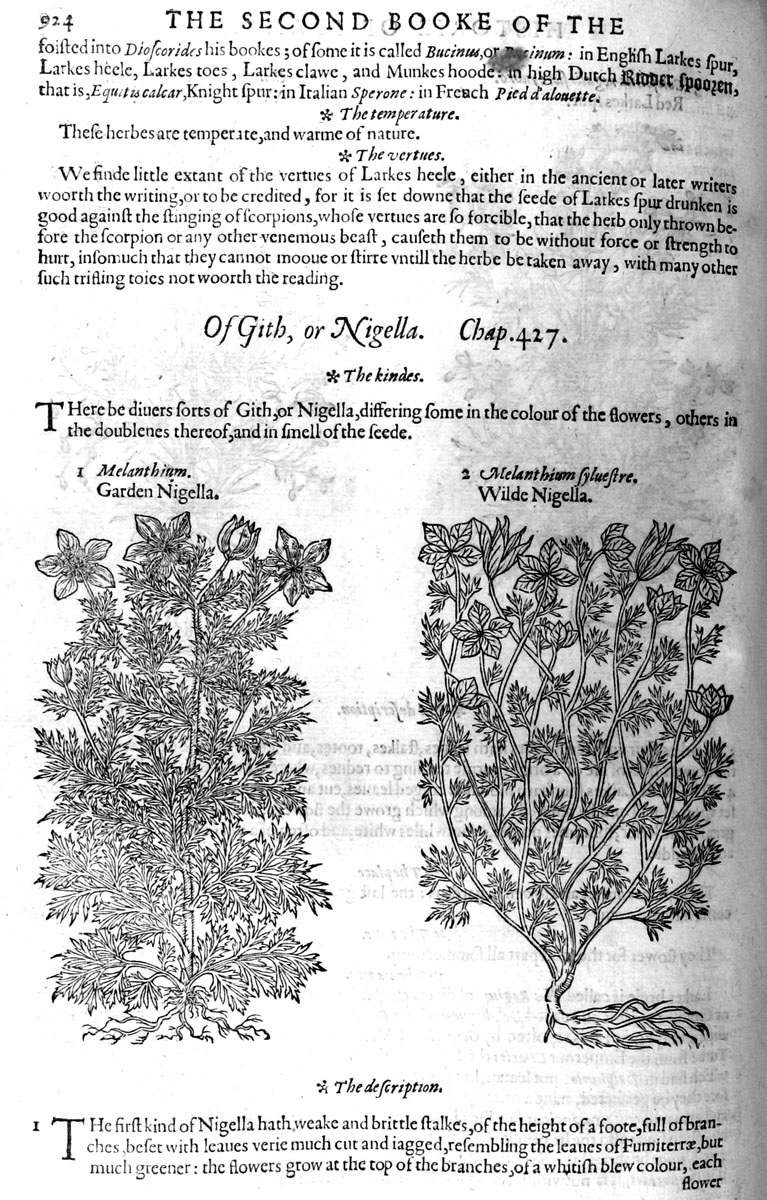 924 THE SECOND BOOKE OF THE
foiſted into Dioſcorides his bookes; of ſome it is called Bucinus, or Bucinum: in Engliſh Larkes ſpur,
Larkes heele, Larkes toes, Larkes clawe, and Munkes hoode: in high Dutch Ridder ſpoozen,
that is, Equitis calcar, Knight ſpur: in Italian Sperone: in French Pied d'alouette.
❊ The temperature.
Theſe herbes are temperate, and warme of nature.
❊ The vertues.
We finde little extant of the vertues of Larkes heele, either in the ancient or later writers
woorth the writing, or to be credited, for it is ſet downe that the ſeede of Larkes ſpur drunken is
good againſt the ſtinging of ſcorpions, whoſe vertues are ſo forcible, that the herb only thrown be-
fore the ſcorpion or any other venemous beaſt, cauſeth them to be without force or ſtrength to
hurt, inſomuch that they cannot mooue or ſtirre vntill the herbe be taken away, with many other
ſuch trifling toies not woorth the reading.
Of Gith, or Nigella. Chap. 427.
❊ The kindes.
THere be diuers ſorts of Gith, or Nigella, differing ſome in the colour of the flowers, others in
the doublenes thereof, and in ſmell of the ſeede.
1 Melanthium.
Garden Nigella.
2 Melanthium ſylueſtre.
Wilde Nigella.
❊ The deſcription.
1 THe firſt kind of Nigella hath weake and brittle ſtalkes, of the height of a foote, full of bran-
ches, beſet with leaues verie much cut and iagged, reſembling the leaues of Fumiterræ, but
much greener: the flowers grow at the top of the branches, of a whitiſh blew colour, each
flower